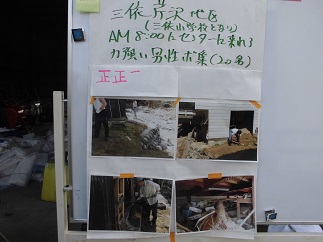 三依芹沢地区
(三依小学校となり)
AM 8:00にセンターに来れる
力強い男性ボ募集(20名)
正正一